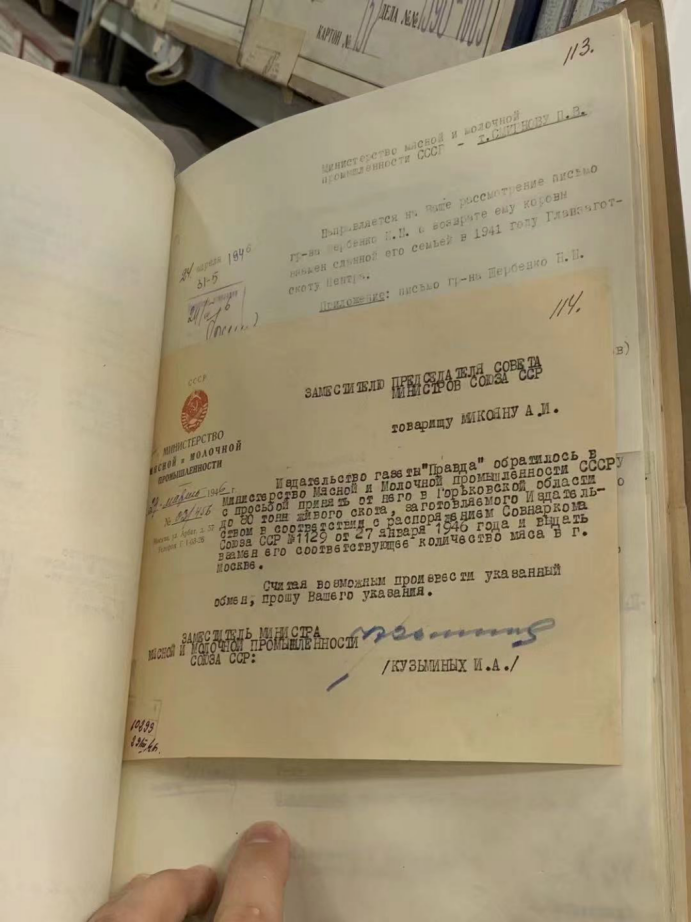 КАРТОН № 137
ДЕЛА №№
113.
Министерство мясной и молочной
промышленности СССР - т.СМИРНОВУ П.В.
Направляется на Ваше рассмотрение письмо
гр-на Щербенко Н.Н. о возврате ему коровы
взамен сданной его семьей в 1941 году Главзагот-
скоту Центра.
Приложение: письмо гр-на Щербенко Н.Н.
24 марта 1946
31-5
114.
в)
СССР
МИНИСТЕРСТВО
МЯСНОЙ и МОЛОЧНОЙ
ПРОМЫШЛЕННОСТИ
марта 1946 г
№
ЗАМЕСТИТЕЛЮ ПРЕДСЕДАТЕЛЯ СОВЕТА
МИНИСТРОВ СОЮЗА ССР
товарищу МИКОЯНУ А.И.
Издательство газеты "Правда" обратилось в
Министерство Мясной и Молочной промышленности СССР
с просьбой принять от него в Горьковской области
до 80 тонн живого скота, заготовляемого Издатель-
ством в соответствии с распоряжением Совнаркома
Союза ССР №1129 от 27 января 1946 года и выдать
взамен его соответствующее количество мяса в г.
Москве.
Считая возможным произвести указанный
обмен, прошу Вашего указания.
ЗАМЕСТИТЕЛЬ МИНИСТРА
МЯСНОЙ И МОЛОЧНОЙ ПРОМЫШЛЕННОСТИ
СОЮЗА ССР:
/КУЗЬМИНЫХ И.А./
10899